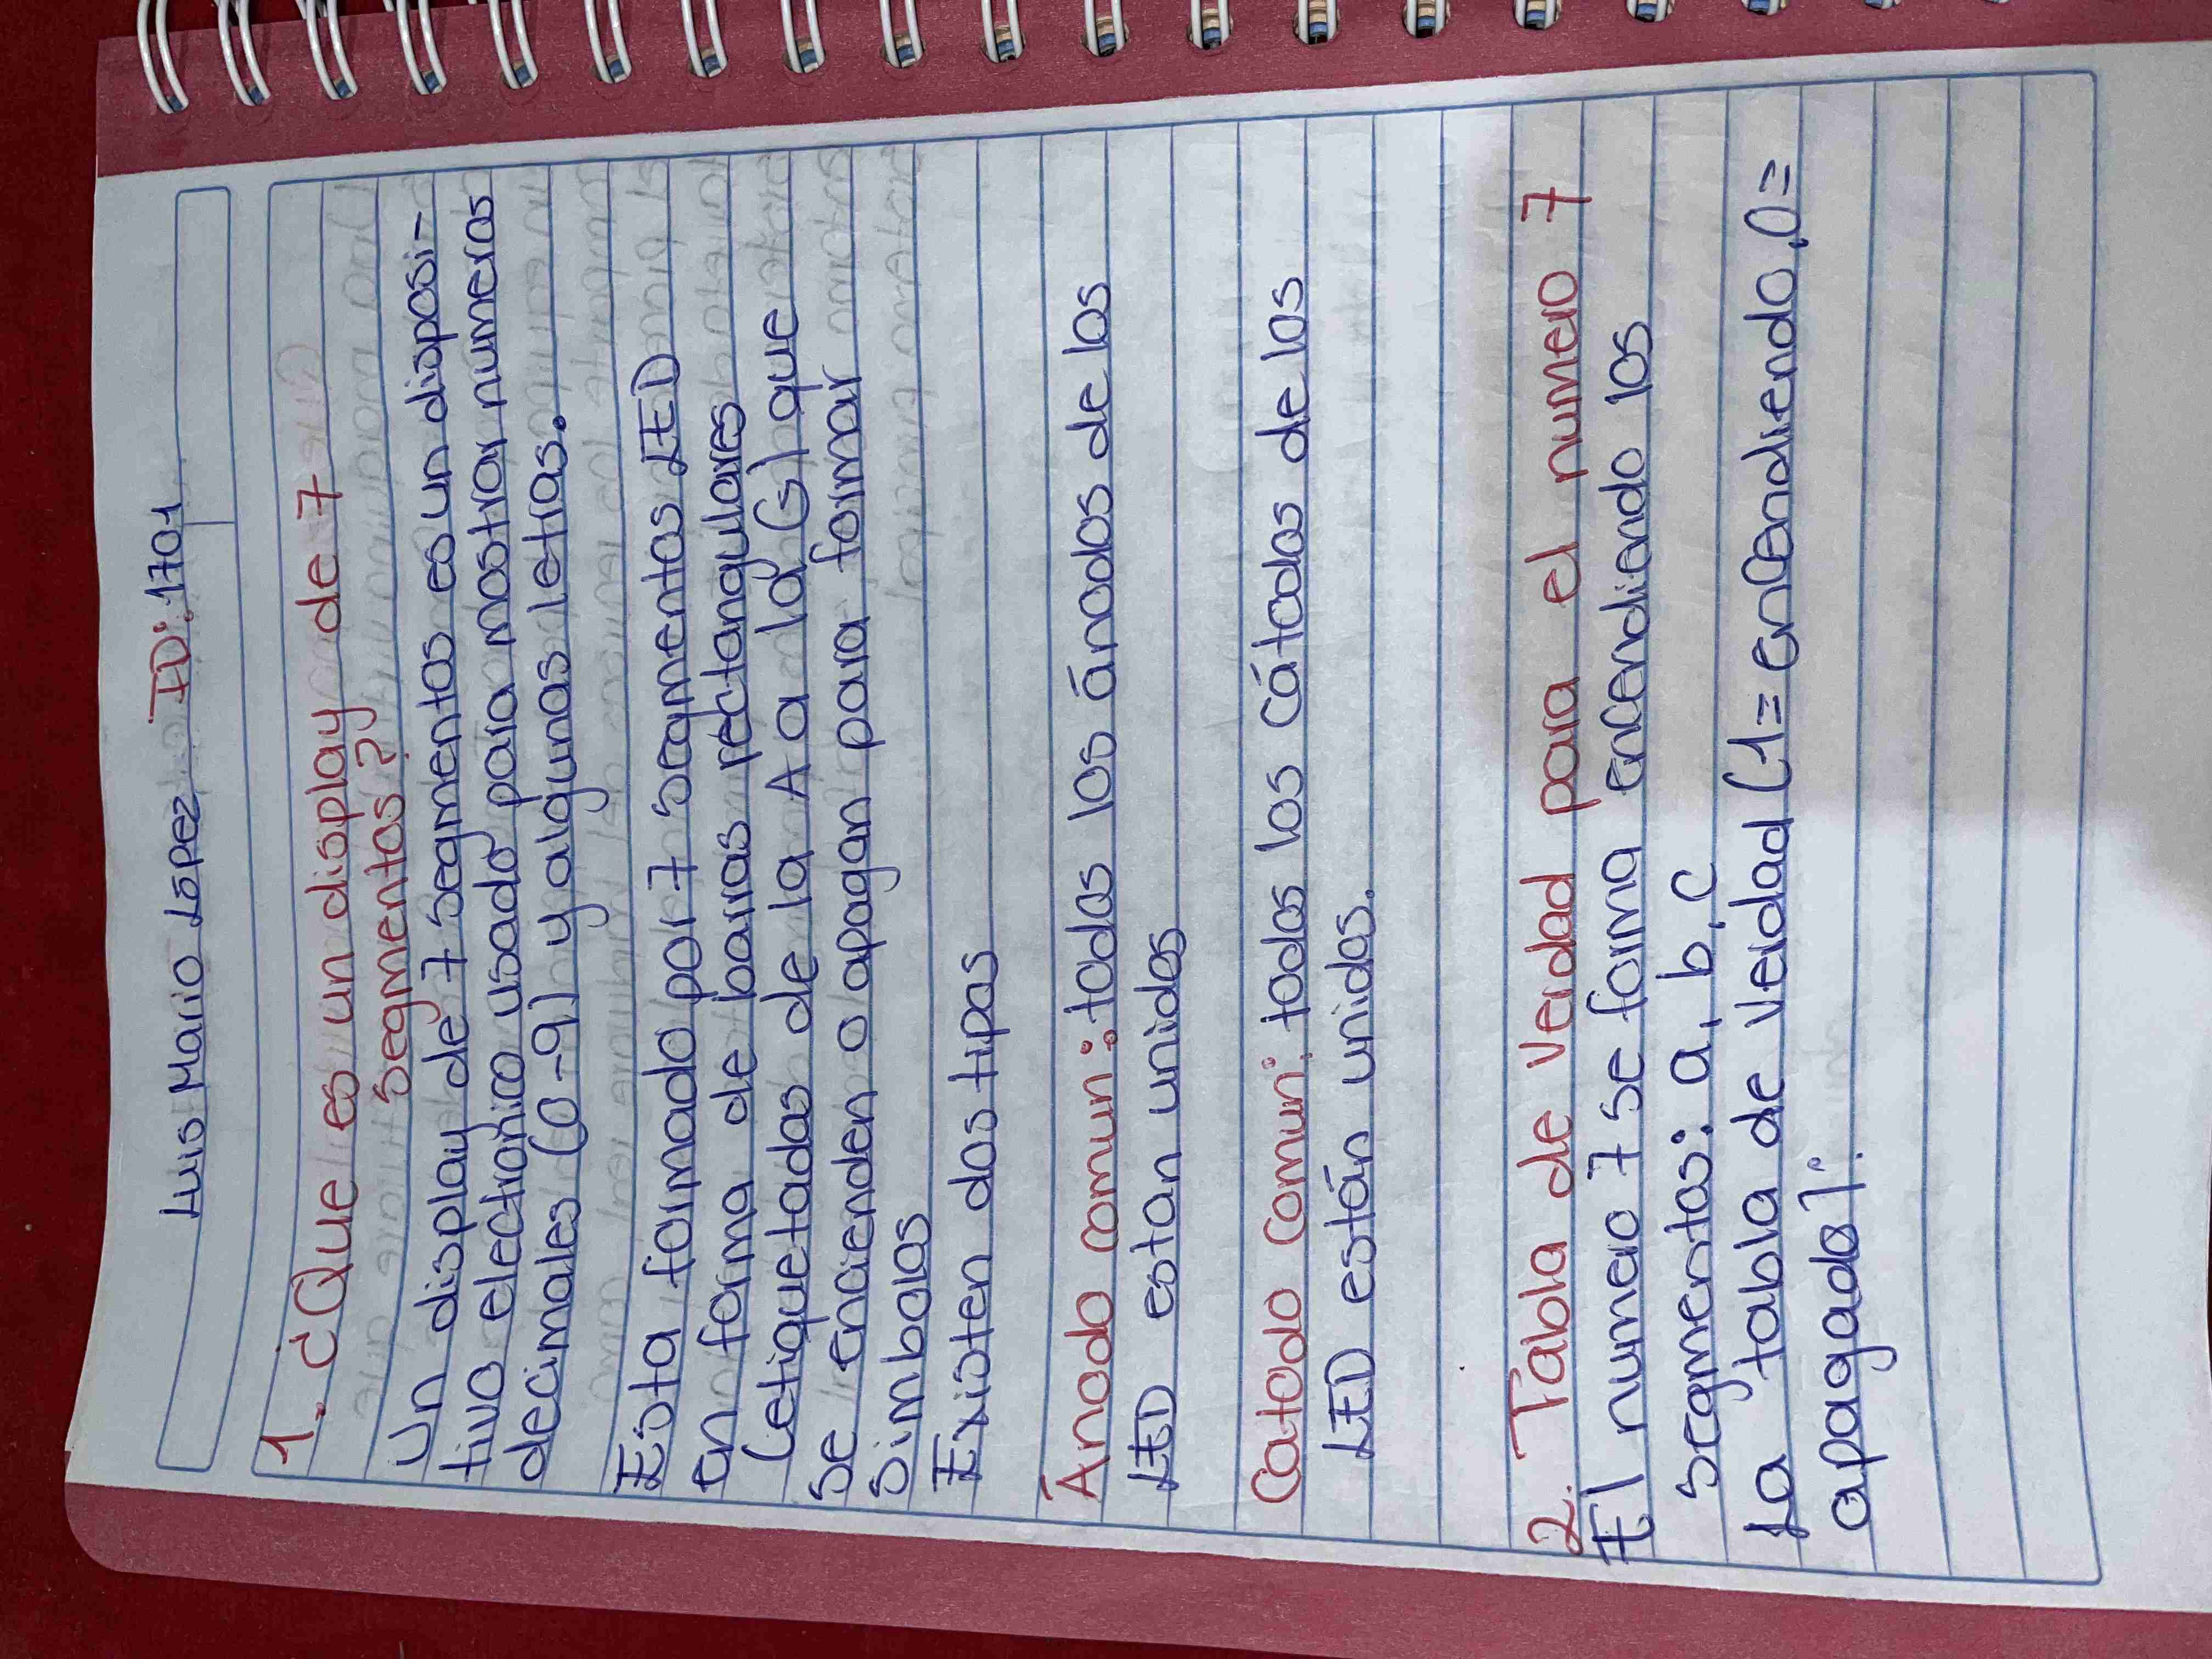 Luis Mario Lopez ID: 1701
1. ¿Que es un display de 7
segmentos?
Un display de 7 segmentos es un disposi-
tivo electronico usado para mostrar numeros
decimales (0-9) y algunas letras.
Esta formado por 7 segmentos LED
en forma de barras rectangulares
(etiquetadas de la A a la G) que
se encienden o apagan para formar
simbolos
Existen dos tipos
Anodo comun: todos los ánodos de los
LED estan unidos
Catodo comun: todos los cátodos de los
LED están unidos.
2. Tabla de verdad para el numero 7
El numero 7 se forma encendiendo los
segmentos: a, b, c
La tabla de verdad (1= encendiendo, 0=
apagado):